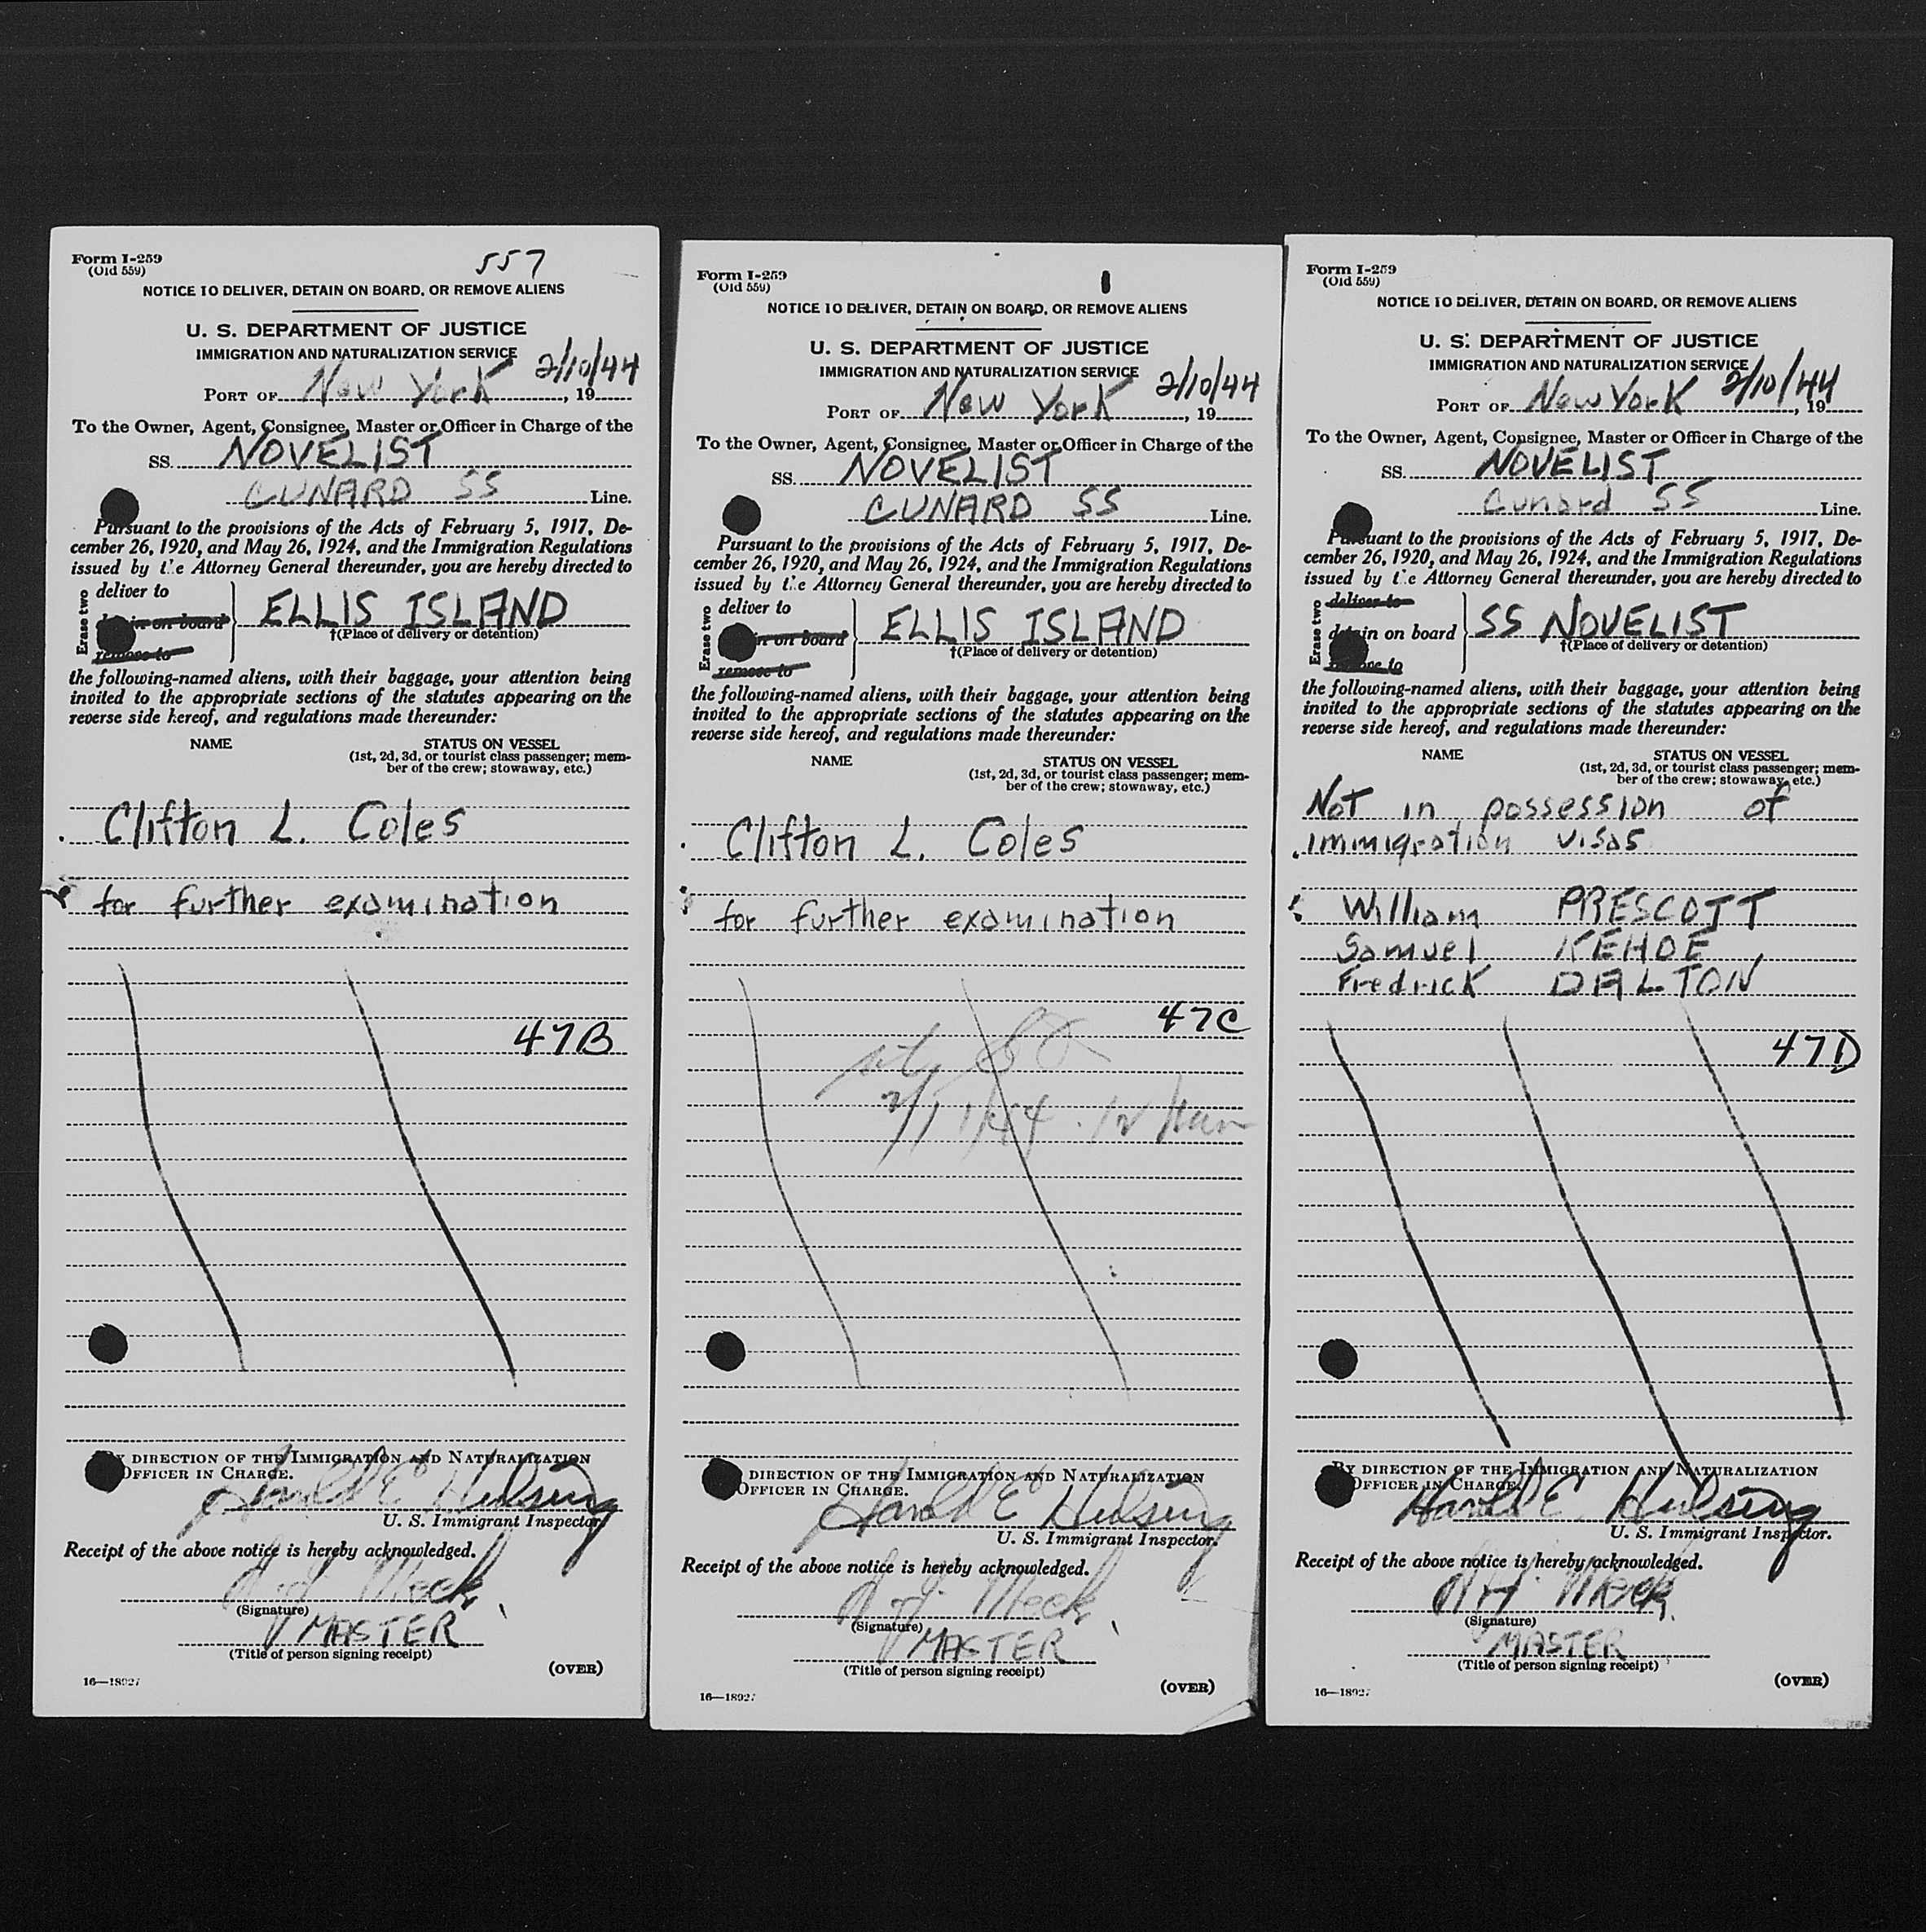 Form I-259
(Old 559)
557
NOTICE TO DELIVER, DETAIN ON BOARD, OR REMOVE ALIENS
U. S. DEPARTMENT OF JUSTICE
IMMIGRATION AND NATURALIZATION SERVICE
PORT OF New York 2/10/44, 19
To the Owner, Agent, Consignee, Master or Officer in Charge of the
SS. NOVELIST
CUNARD SS Line.
Pursuant to the provisions of the Acts of February 5, 1917, De-
cember 26, 1920, and May 26, 1924, and the Immigration Regulations
issued by the Attorney General thereunder, you are hereby directed to
Erase two
deliver to
in on board
remove to
ELLIS ISLAND
†(Place of delivery or detention)
the following-named aliens, with their baggage, your attention being
invited to the appropriate sections of the statutes appearing on the
reverse side hereof, and regulations made thereunder:
NAME STATUS ON VESSEL
(1st, 2d, 3d, or tourist class passenger; mem-
ber of the crew; stowaway, etc.)
Clifton L. Coles
for further examination
47B
BY DIRECTION OF THE IMMIGRATION AND NATURALIZATION
OFFICER IN CHARGE.
Harold E Hulsing
U. S. Immigrant Inspector.
Receipt of the above notice is hereby acknowledged.
Meck
(Signature)
MASTER
(Title of person signing receipt)
(OVER)
16—18927
Form I-259
(Old 559)
NOTICE TO DELIVER, DETAIN ON BOARD, OR REMOVE ALIENS
U. S. DEPARTMENT OF JUSTICE
IMMIGRATION AND NATURALIZATION SERVICE
PORT OF New York 2/10/44, 19
To the Owner, Agent, Consignee, Master or Officer in Charge of the
SS. NOVELIST
CUNARD SS Line.
Pursuant to the provisions of the Acts of February 5, 1917, De-
cember 26, 1920, and May 26, 1924, and the Immigration Regulations
issued by the Attorney General thereunder, you are hereby directed to
Erase two
deliver to
in on board
remove to
ELLIS ISLAND
†(Place of delivery or detention)
the following-named aliens, with their baggage, your attention being
invited to the appropriate sections of the statutes appearing on the
reverse side hereof, and regulations made thereunder:
NAME STATUS ON VESSEL
(1st, 2d, 3d, or tourist class passenger; mem-
ber of the crew; stowaway, etc.)
Clifton L. Coles
for further examination
47C
2/11/44
DIRECTION OF THE IMMIGRATION AND NATURALIZATION
OFFICER IN CHARGE.
Harold E Hulsing
U. S. Immigrant Inspector.
Receipt of the above notice is hereby acknowledged.
Meck
(Signature)
MASTER
(Title of person signing receipt)
(OVER)
16—18927
Form I-259
(Old 559)
NOTICE TO DELIVER, DETAIN ON BOARD, OR REMOVE ALIENS
U. S. DEPARTMENT OF JUSTICE
IMMIGRATION AND NATURALIZATION SERVICE
PORT OF New York 2/10/44, 19
To the Owner, Agent, Consignee, Master or Officer in Charge of the
SS. NOVELIST
Cunard SS Line.
Pursuant to the provisions of the Acts of February 5, 1917, De-
cember 26, 1920, and May 26, 1924, and the Immigration Regulations
issued by the Attorney General thereunder, you are hereby directed to
Erase two
deliver to
detain on board
remove to
SS NOVELIST
†(Place of delivery or detention)
the following-named aliens, with their baggage, your attention being
invited to the appropriate sections of the statutes appearing on the
reverse side hereof, and regulations made thereunder:
NAME STATUS ON VESSEL
(1st, 2d, 3d, or tourist class passenger; mem-
ber of the crew; stowaway, etc.)
Not in possession of
immigration visas
William PRESCOTT
Samuel KEHOE
Fredrick DALTON
47D
BY DIRECTION OF THE IMMIGRATION AND NATURALIZATION
OFFICER IN CHARGE.
Harold E. Hulsing
U. S. Immigrant Inspector.
Receipt of the above notice is hereby acknowledged.
Meck
(Signature)
MASTER
(Title of person signing receipt)
(OVER)
16—18927